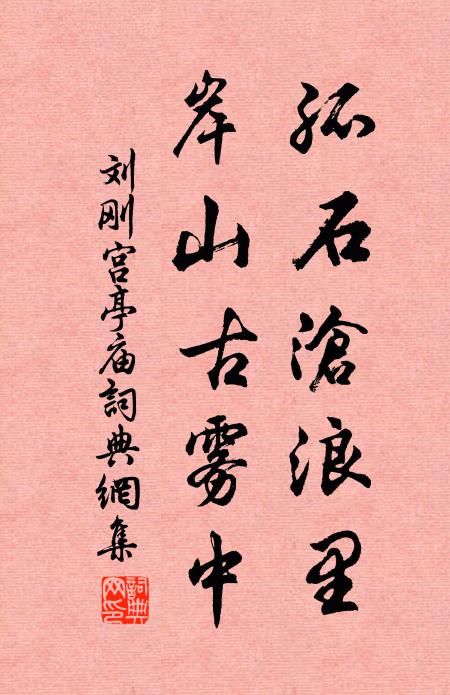 孤石滄浪里
岸山古雾中
刘刚宫亭庙詞典網集
詞典
网印